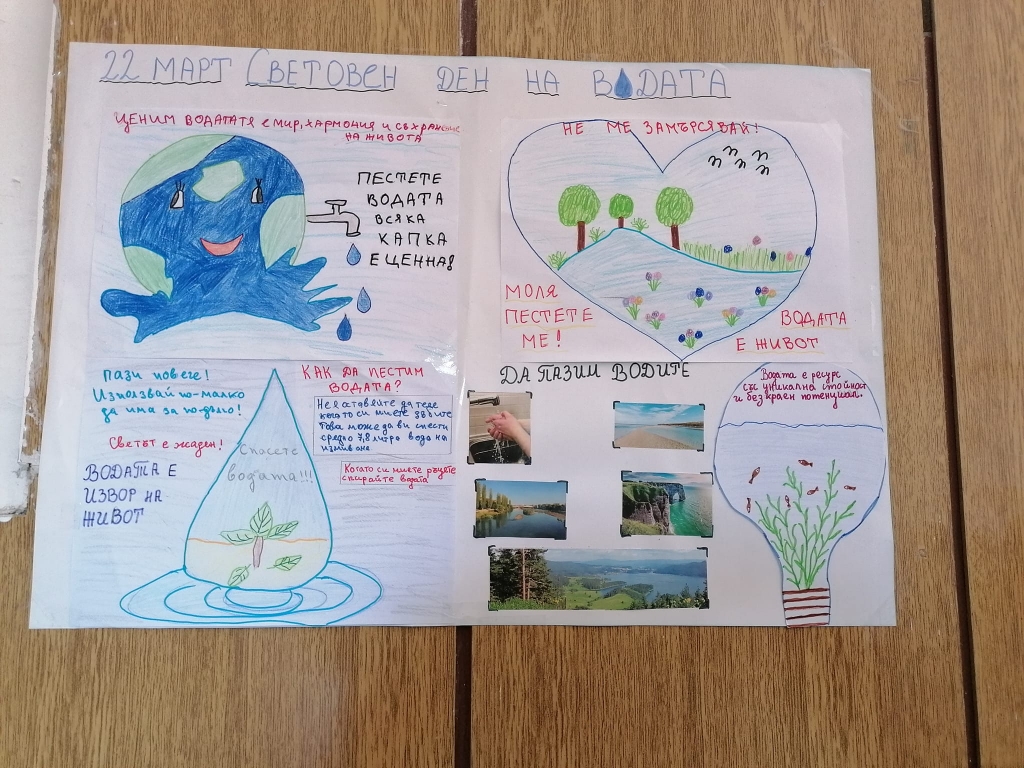 22 МАРТ СВЕТОВЕН ДЕН НА ВОДАТА
ЦЕНИМ ВОДАТАТЯ Е МИР, ХАРМОНИЯ И СЪХРАНЕНИЕ
НА ЖИВОТА
ПЕСТЕТЕ
ВОДАТА
ВСЯКА
КАПКА
Е ЦЕННА!
НЕ МЕ ЗАМЪРСЯВАЙ!
МОЛЯ
ПЕСТЕТЕ
МЕ!
ВОДАТА
Е ЖИВОТ
Пази повече!
Използвай по-малко
да има за по-дълго!
Светът е жаден!
ВОДАТА Е
ИЗВОР НА
ЖИВОТ
Спасете
водата!!!
КАК ДА ПЕСТИМ
ВОДАТА?
Не я оставяйте да тече
когато си миете зъбите
Това може да ви спести
средно 7,8 литра вода на
измиване
Когато си миете ръцете
спирайте водата
ДА ПАЗИМ ВОДИТЕ
Водата е ресурс
със уникална стойност
и безкраен потенциал.